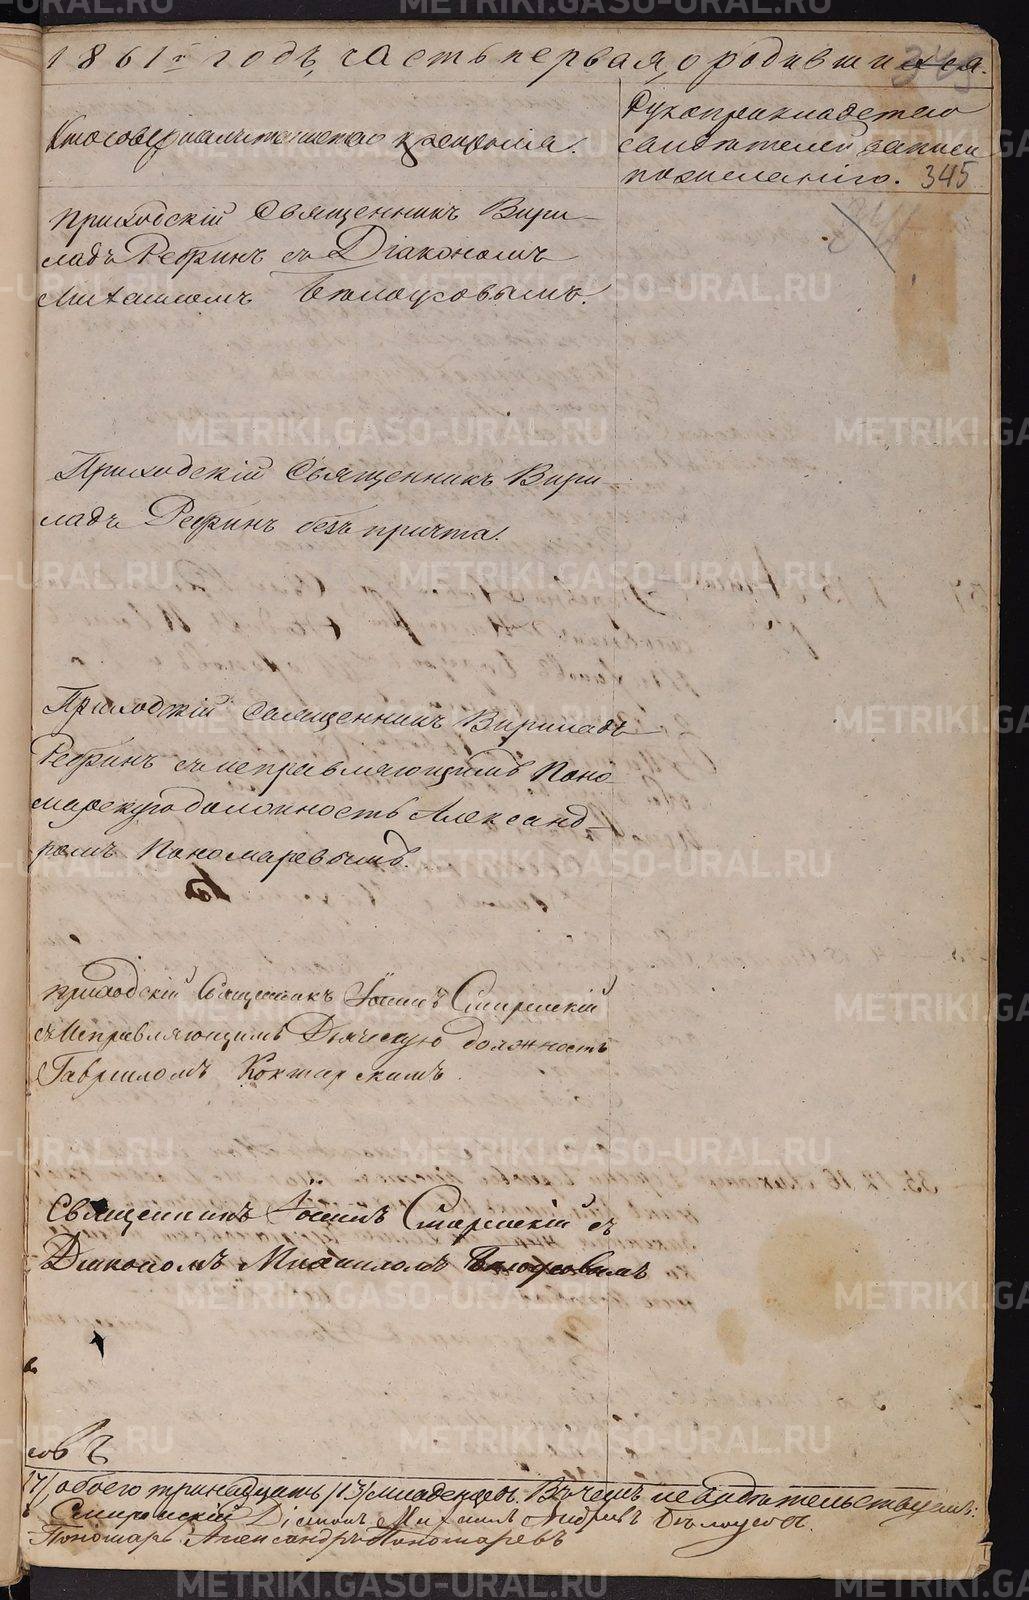 1861й годъ, часть первая, о родившихся.
Кто совершалъ таинство крещенія.
Рукоприкладство
свидѣтелей записи
по желанію. 345
Приходскій Священникъ Вири-
ладъ Рефинъ съ Діакономъ
Михаиломъ Бѣлоусовымъ.
Приходскій Священникъ Вири-
ладъ Рефинъ безъ причта.
Приходскій Священникъ Вириладъ
Рефинъ съ исправляющимъ Поно
марскую должность Александ-
ромъ Пономаревымъ.
Приходскій Священникъ Іоаннъ
съ Исправляющимъ Дьяческую должность
Гавріиломъ
Священникъ Іоаннъ съ
Діакономъ Михаиломъ Бѣлоусовымъ
совъ
(7) обоего тринадцать (13) младенцевъ. Въ чемъ и свидѣтельствуемъ:
Діаконъ Михаилъ Андреевъ Бѣлоусовъ.
Пономарь Александръ Пономаревъ
METRIKI.GASO-URAL.RU